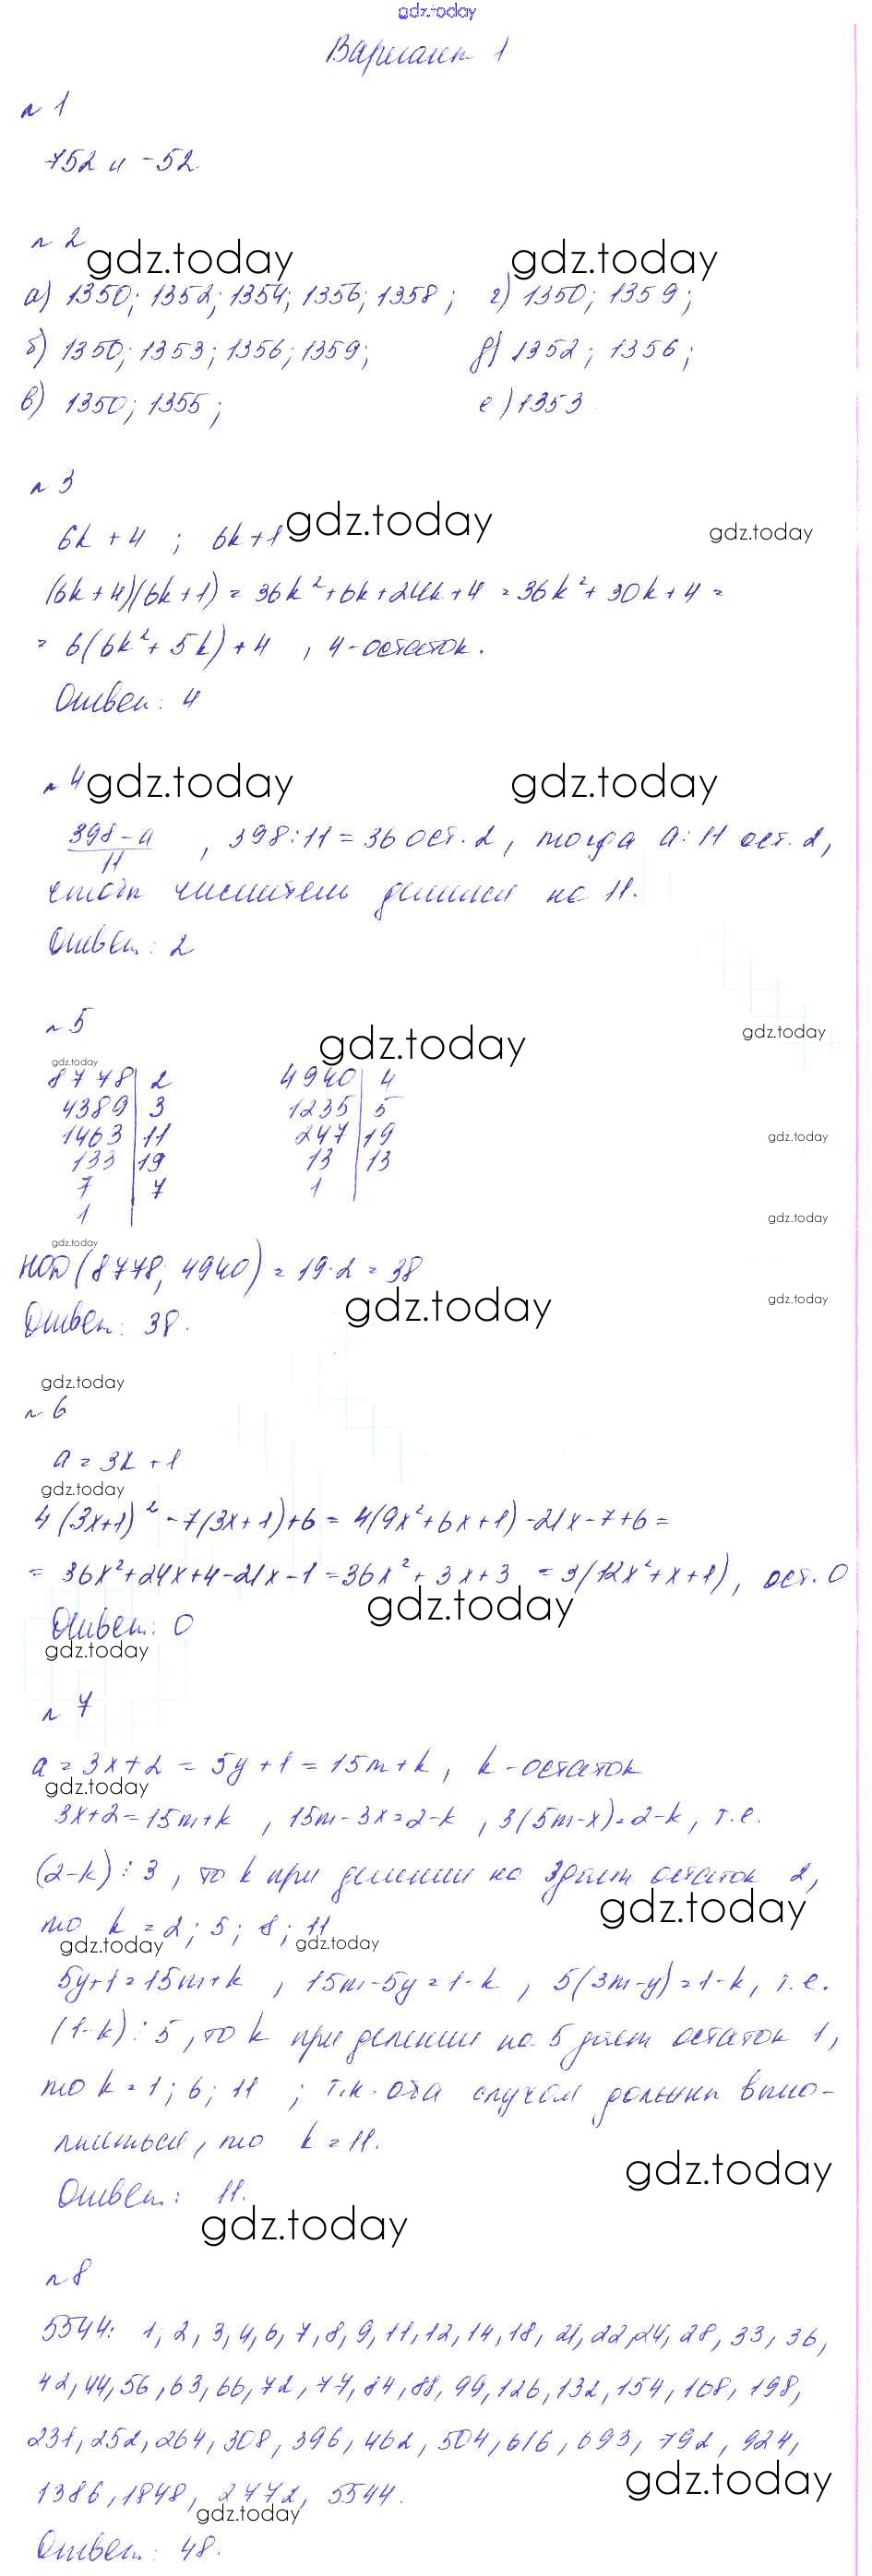 gdz.today
Вариант 1
№ 1
752 и -52.
№ 2
gdz.today gdz.today
а) 1350; 1352; 1354; 1356; 1358; г) 1350; 1359;
б) 1350; 1353; 1356; 1359; д) 1352; 1356;
в) 1350; 1355; е) 1353
№ 3
6k + 4 ; 6k + 1 gdz.today gdz.today
(6k + 4)(6k + 1) = 36k² + 6k + 24k + 4 = 36k² + 30k + 4 =
= 6(6k² + 5k) + 4 , 4 - остаток.
Ответ: 4
№ 4 gdz.today gdz.today
398 - a / 11 , 398 : 11 = 36 ост. 2, тогда a : 11 ост. 2,
чтобы числитель делился на 11.
Ответ: 2
№ 5
gdz.today gdz.today
gdz.today
8778 | 2 4940 | 4
4389 | 3 1235 | 5
1463 | 11 247 | 19 gdz.today
133 | 19 13 | 13
7 | 7 1
1 gdz.today
gdz.today
НОД (8778; 4940) = 19 · 2 = 38
gdz.today gdz.today
Ответ: 38.
gdz.today
№ 6
a = 3k + 1
gdz.today
4(3x+1)² - 7(3x+1) + 6 = 4(9x² + 6x + 1) - 21x - 7 + 6 =
= 36x² + 24x + 4 - 21x - 1 = 36x² + 3x + 3 = 3(12x² + x + 1), ост. 0
gdz.today
Ответ: 0
gdz.today
№ 7
a = 3x + 2 = 5y + 1 = 15m + k, k - остаток
gdz.today
3x + 2 = 15m + k , 15m - 3x = 2 - k , 3(5m - x) = 2 - k, т.е.
(2 - k) ⋮ 3 , то k при делении на 3 дает остаток 2,
gdz.today
то k = 2; 5; 8; 11
gdz.today gdz.today
5y + 1 = 15m + k , 15m - 5y = 1 - k , 5(3m - y) = 1 - k, т.е.
(1 - k) ⋮ 5 , то k при делении на 5 дает остаток 1,
то k = 1; 6; 11 ; т.к. оба случая должны выпо-
лниться, то k = 11.
gdz.today
Ответ: 11.
gdz.today
№ 8
5544: 1, 2, 3, 4, 6, 7, 8, 9, 11, 12, 14, 18, 21, 22, 24, 28, 33, 36,
42, 44, 56, 63, 66, 72, 77, 84, 88, 99, 126, 132, 154, 168, 198,
231, 252, 264, 308, 396, 462, 504, 616, 693, 792, 924,
gdz.today
1386, 1848, 2772, 5544.
gdz.today
Ответ: 48.